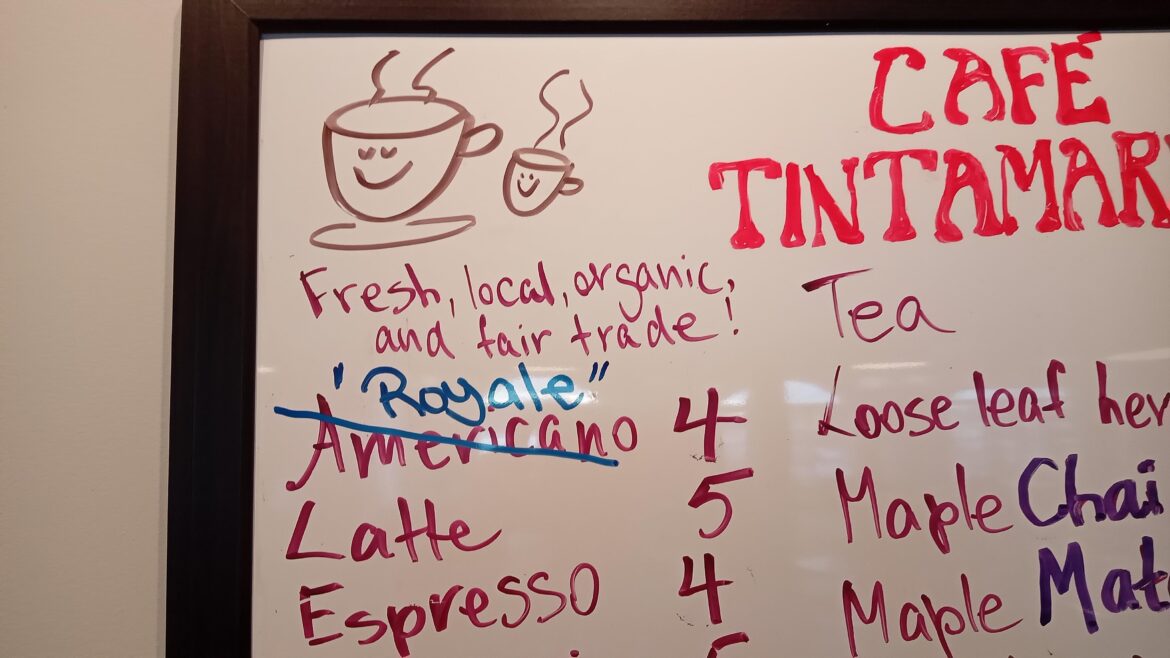 CAFÉ
TINTAMAR
Fresh, local, organic,
and fair trade!
"Royale"
Americano 4
Latte 5
Espresso 4
Tea
Loose leaf
Maple Chai
Maple